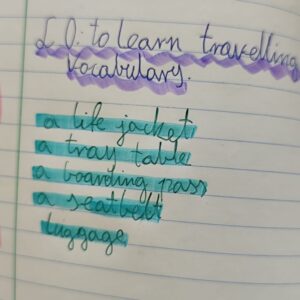 L O: to learn travelling
vocabulary.
a life jacket
a tray table
a boarding pass
a seatbelt
luggage